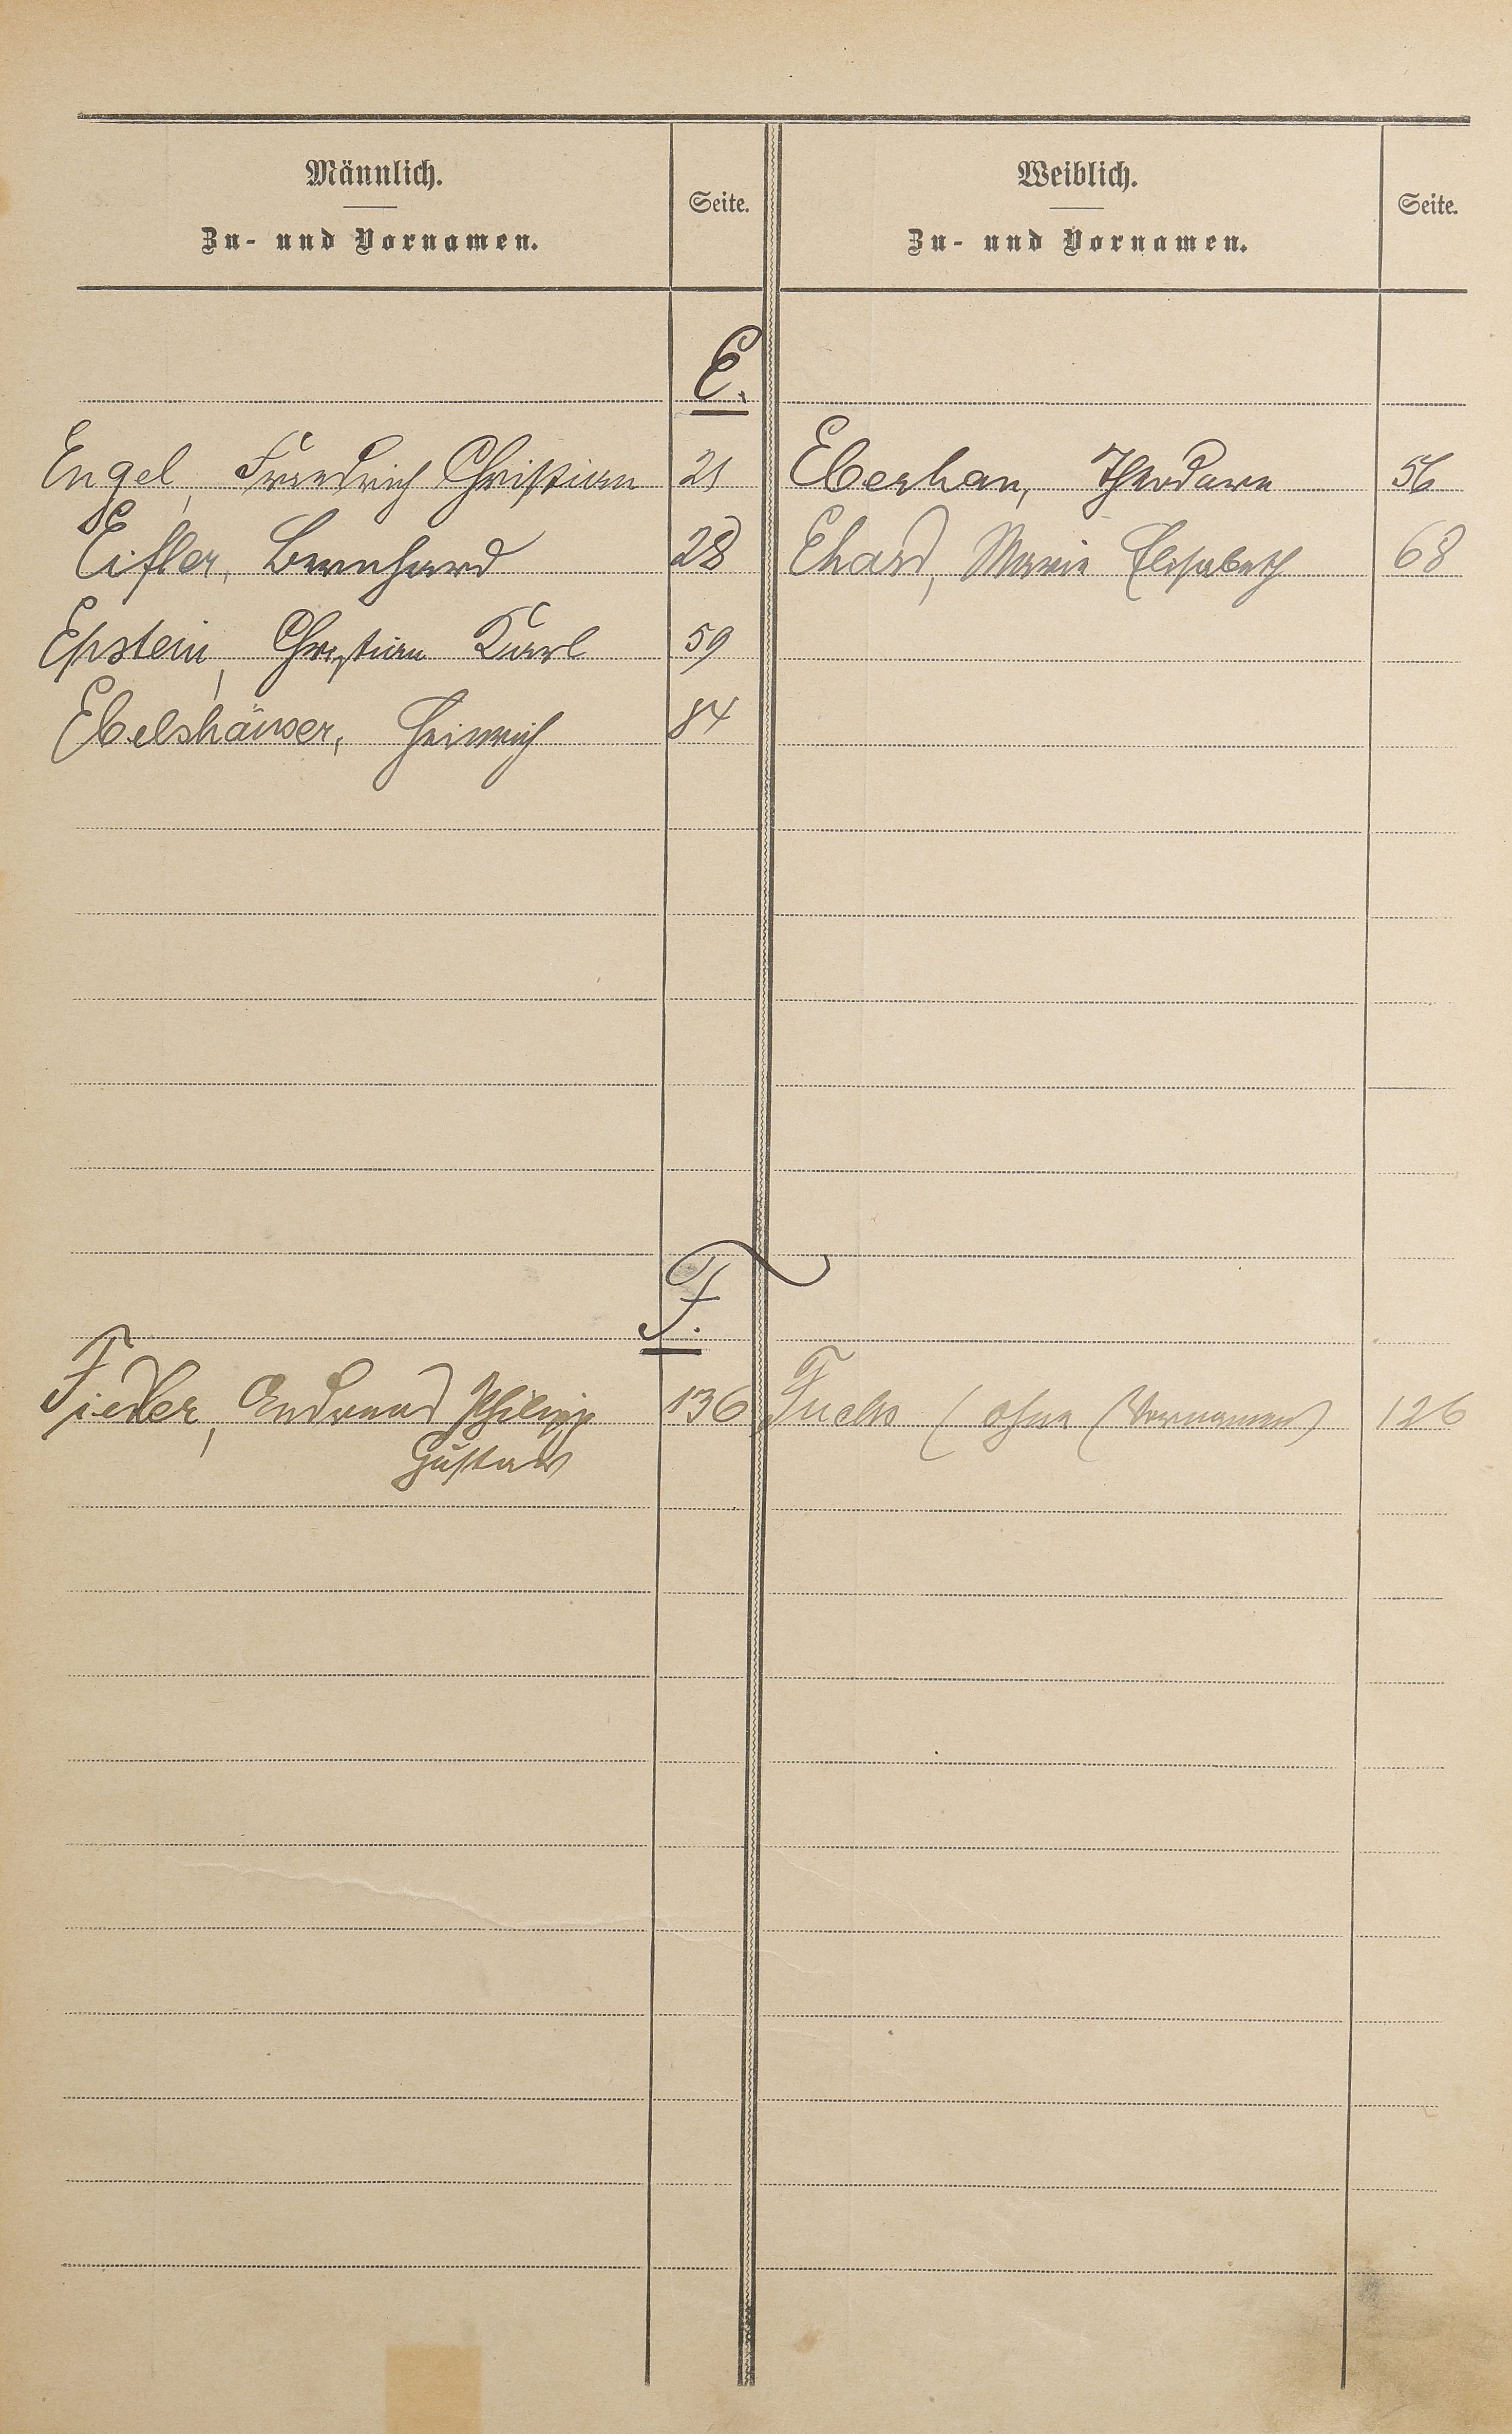 Männlich.
Zu- und Vornamen.
Seite.
Weiblich.
Zu- und Vornamen.
Seite.
E.
Engel, Friedrich Christian 21 Eberhan, Theodore 56
Eifler, Bernhard 28 Ehard, Marie Elisabeth 68
Epstein, Christian Karl 59
Ebelshäuser, Heinrich 84
F.
Fiedler, Andreas Philipp 136 Fuchs (ohne Vornamen) 126
Gustav